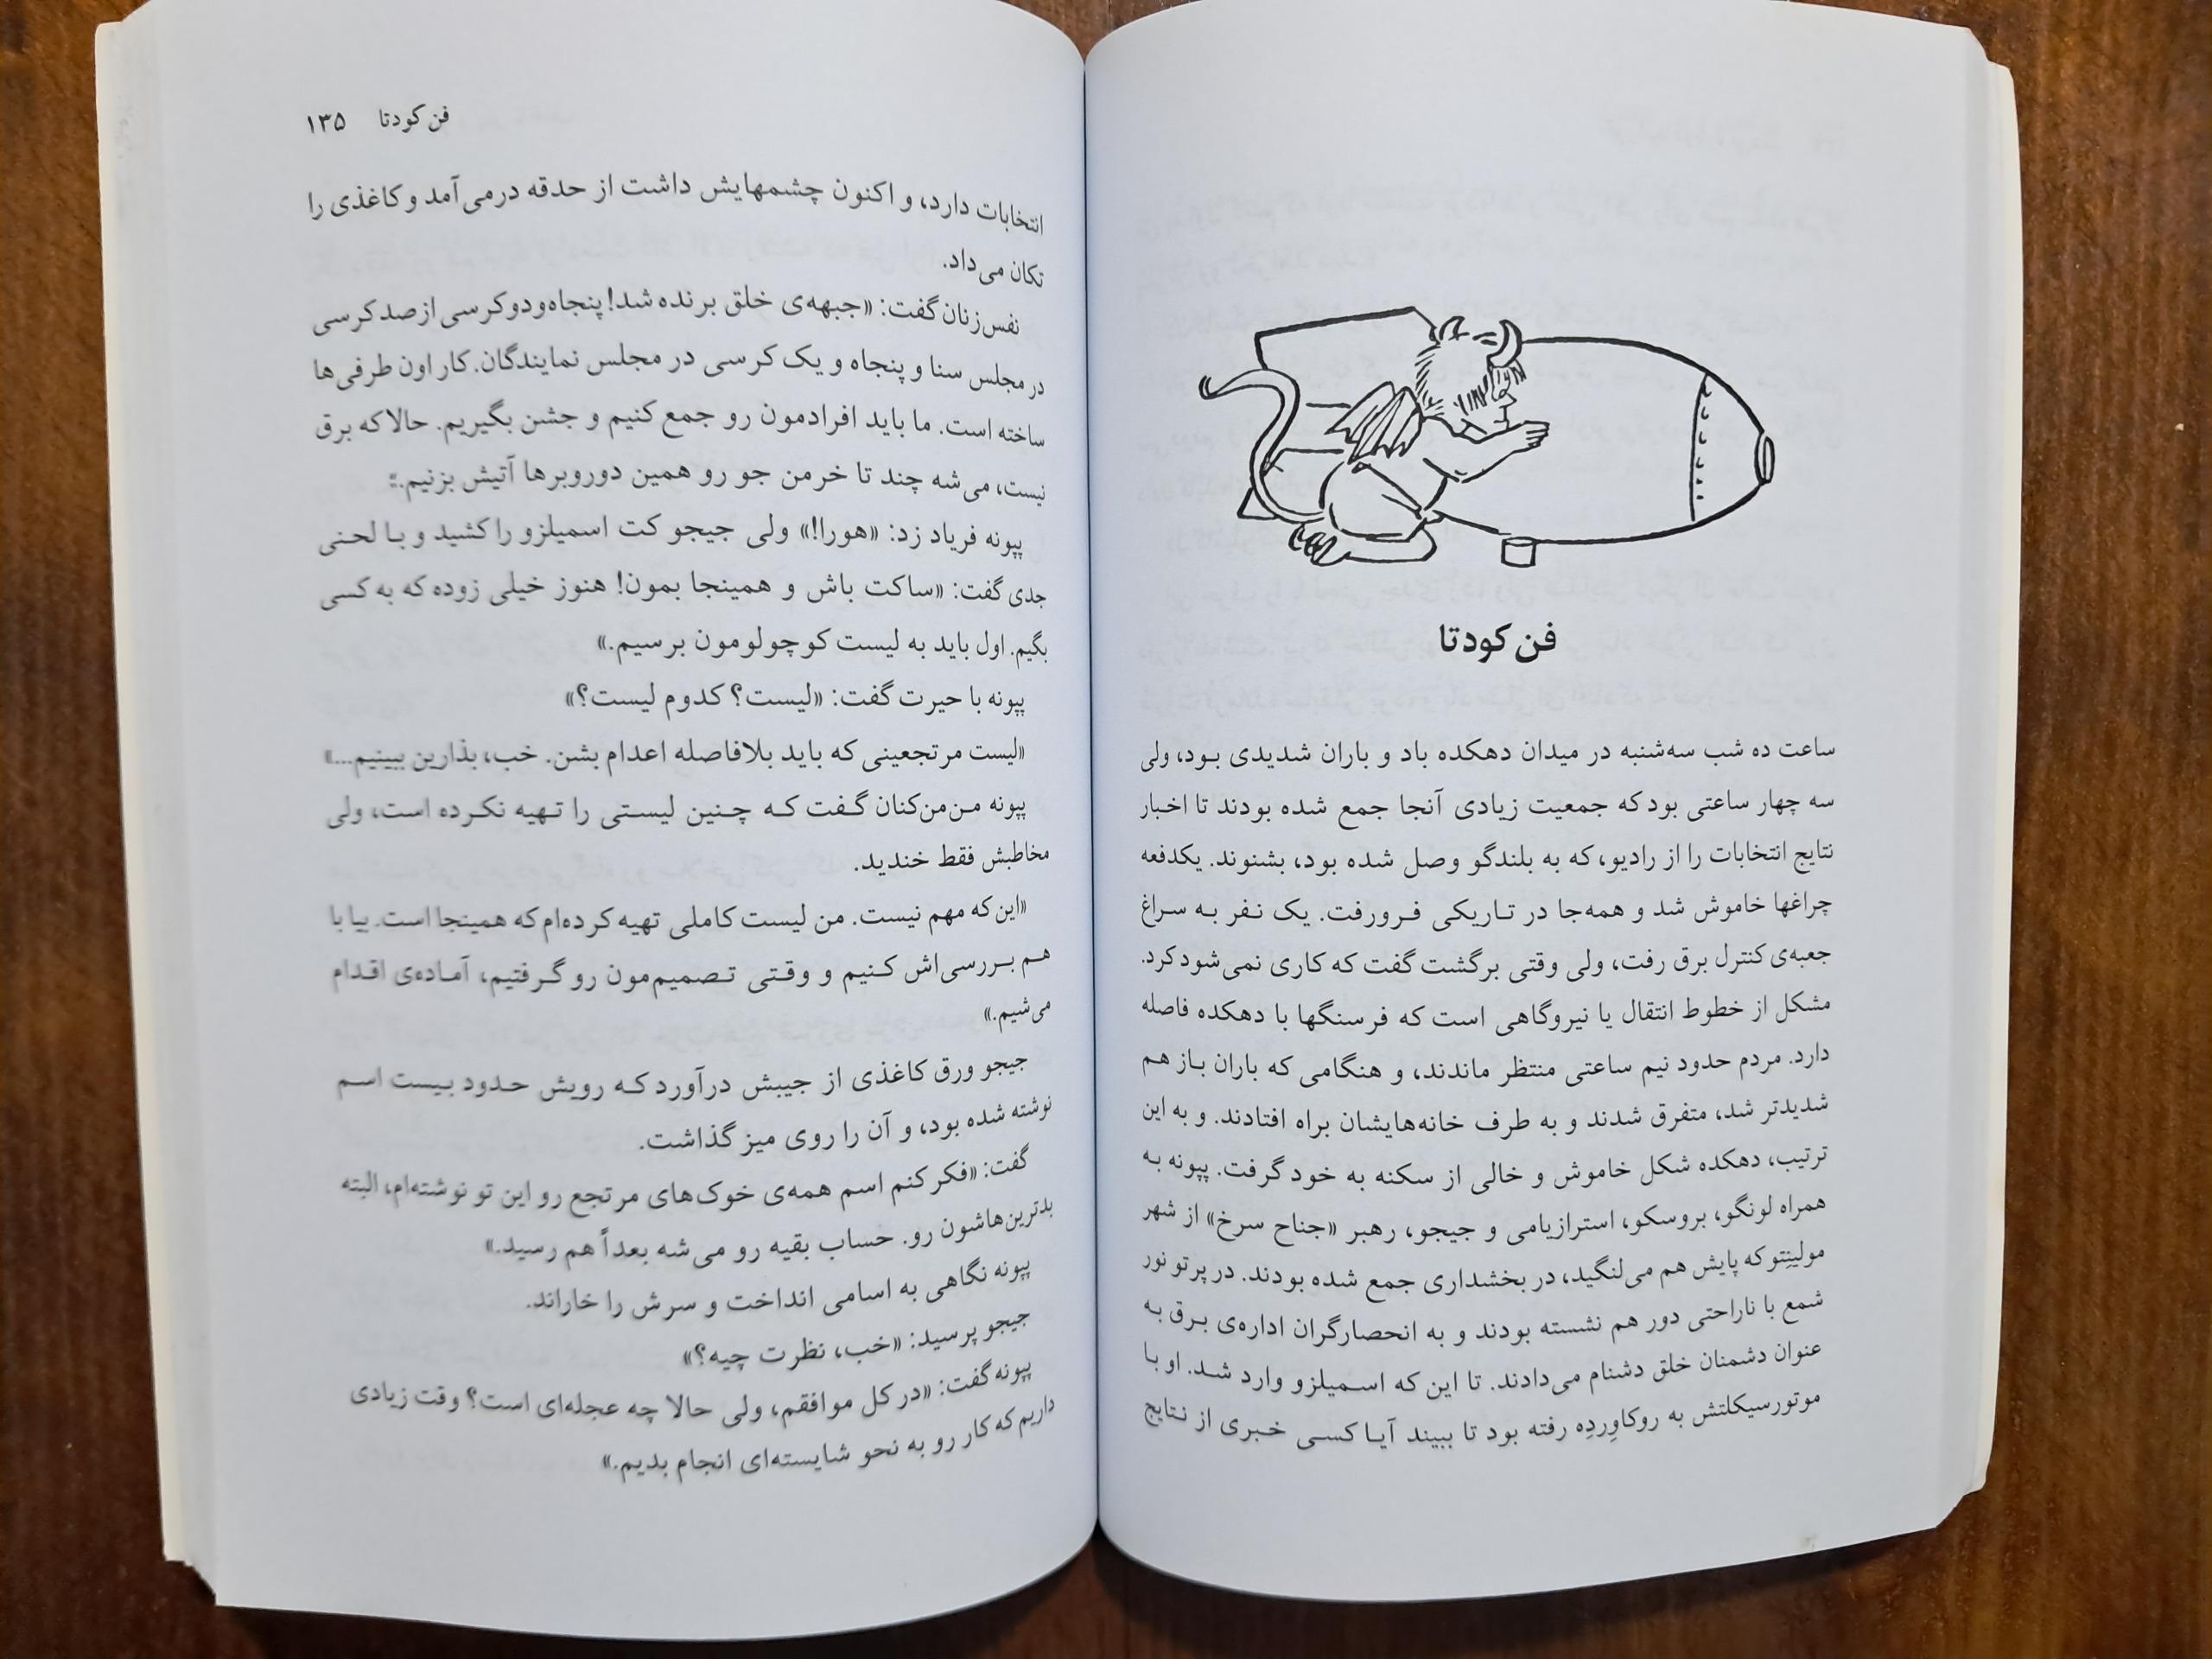 فن کودتا
ساعت ده شب سه‌شنبه در میدان دهکده باد و باران شدیدی بود، ولی
سه چهار ساعتی بود که جمعیت زیادی آنجا جمع شده بودند تا اخبار
نتایج انتخابات را از رادیو، که به بلندگو وصل شده بود، بشنوند. یکدفعه
چراغها خاموش شد و همه‌جا در تاریکی فرورفت. یک نفر به سراغ
جعبه‌ی کنترل برق رفت، ولی وقتی برگشت گفت که کاری نمی‌شود کرد.
مشکل از خطوط انتقال یا نیروگاهی است که فرسنگها با دهکده فاصله
دارد. مردم حدود نیم ساعتی منتظر ماندند، و هنگامی که باران باز هم
شدیدتر شد، متفرق شدند و به طرف خانه‌هایشان براه افتادند. و به این
ترتیب، دهکده شکل خاموش و خالی از سکنه به خود گرفت. پپونه به
همراه لونگو، بروسکو، استرازیامی و جیجو، رهبر «جناح سرخ» از شهر
مولینِتو که پایش هم می‌لنگید، در بخشداری جمع شده بودند. در پرتو نور
شمع با ناراحتی دور هم نشسته بودند و به انحصارگران اداره‌ی برق به
عنوان دشمنان خلق دشنام می‌دادند. تا این که اسمیلزو وارد شد. او با
موتورسیکلتش به روکاوِردِه رفته بود تا ببیند آیا کسی خبری از نتایج
فن کودتا ۱۳۵
انتخابات دارد، و اکنون چشمهایش داشت از حدقه درمی‌آمد و کاغذی را
تکان می‌داد.
نفس‌زنان گفت: «جبهه‌ی خلق برنده شد! پنجاه‌ودو کرسی از صد کرسی
در مجلس سنا و پنجاه و یک کرسی در مجلس نمایندگان. کار اون طرفی‌ها
ساخته است. ما باید افرادمون رو جمع کنیم و جشن بگیریم. حالا که برق
نیست، می‌شه چند تا خرمن جو رو همین دوروبرها آتیش بزنیم.»
پپونه فریاد زد: «هورا!» ولی جیجو کت اسمیلزو را کشید و با لحنی
جدی گفت: «ساکت باش و همینجا بمون! هنوز خیلی زوده که به کسی
بگیم. اول باید به لیست کوچولومون برسیم.»
پپونه با حیرت گفت: «لیست؟ کدوم لیست؟»
«لیست مرتجعینی که باید بلافاصله اعدام بشن. خب، بذارین ببینیم...»
پپونه من‌من‌کنان گفت که چنین لیستی را تهیه نکرده است، ولی
مخاطبش فقط خندید.
«این که مهم نیست. من لیست کاملی تهیه کرده‌ام که همینجا است. بیا با
هم بررسی‌اش کنیم و وقتی تصمیم‌مون رو گرفتیم، آماده‌ی اقدام
می‌شیم.»
جیجو ورق کاغذی از جیبش درآورد که رویش حدود بیست اسم
نوشته شده بود، و آن را روی میز گذاشت.
گفت: «فکر کنم اسم همه‌ی خوک‌های مرتجع رو این تو نوشته‌ام، البته
بدترین‌هاشون رو. حساب بقیه رو می‌شه بعداً هم رسید.»
پپونه نگاهی به اسامی انداخت و سرش را خاراند.
جیجو پرسید: «خب، نظرت چیه؟»
پپونه گفت: «در کل موافقم، ولی حالا چه عجله‌ای است؟ وقت زیادی
داریم که کار رو به نحو شایسته‌ای انجام بدیم.»